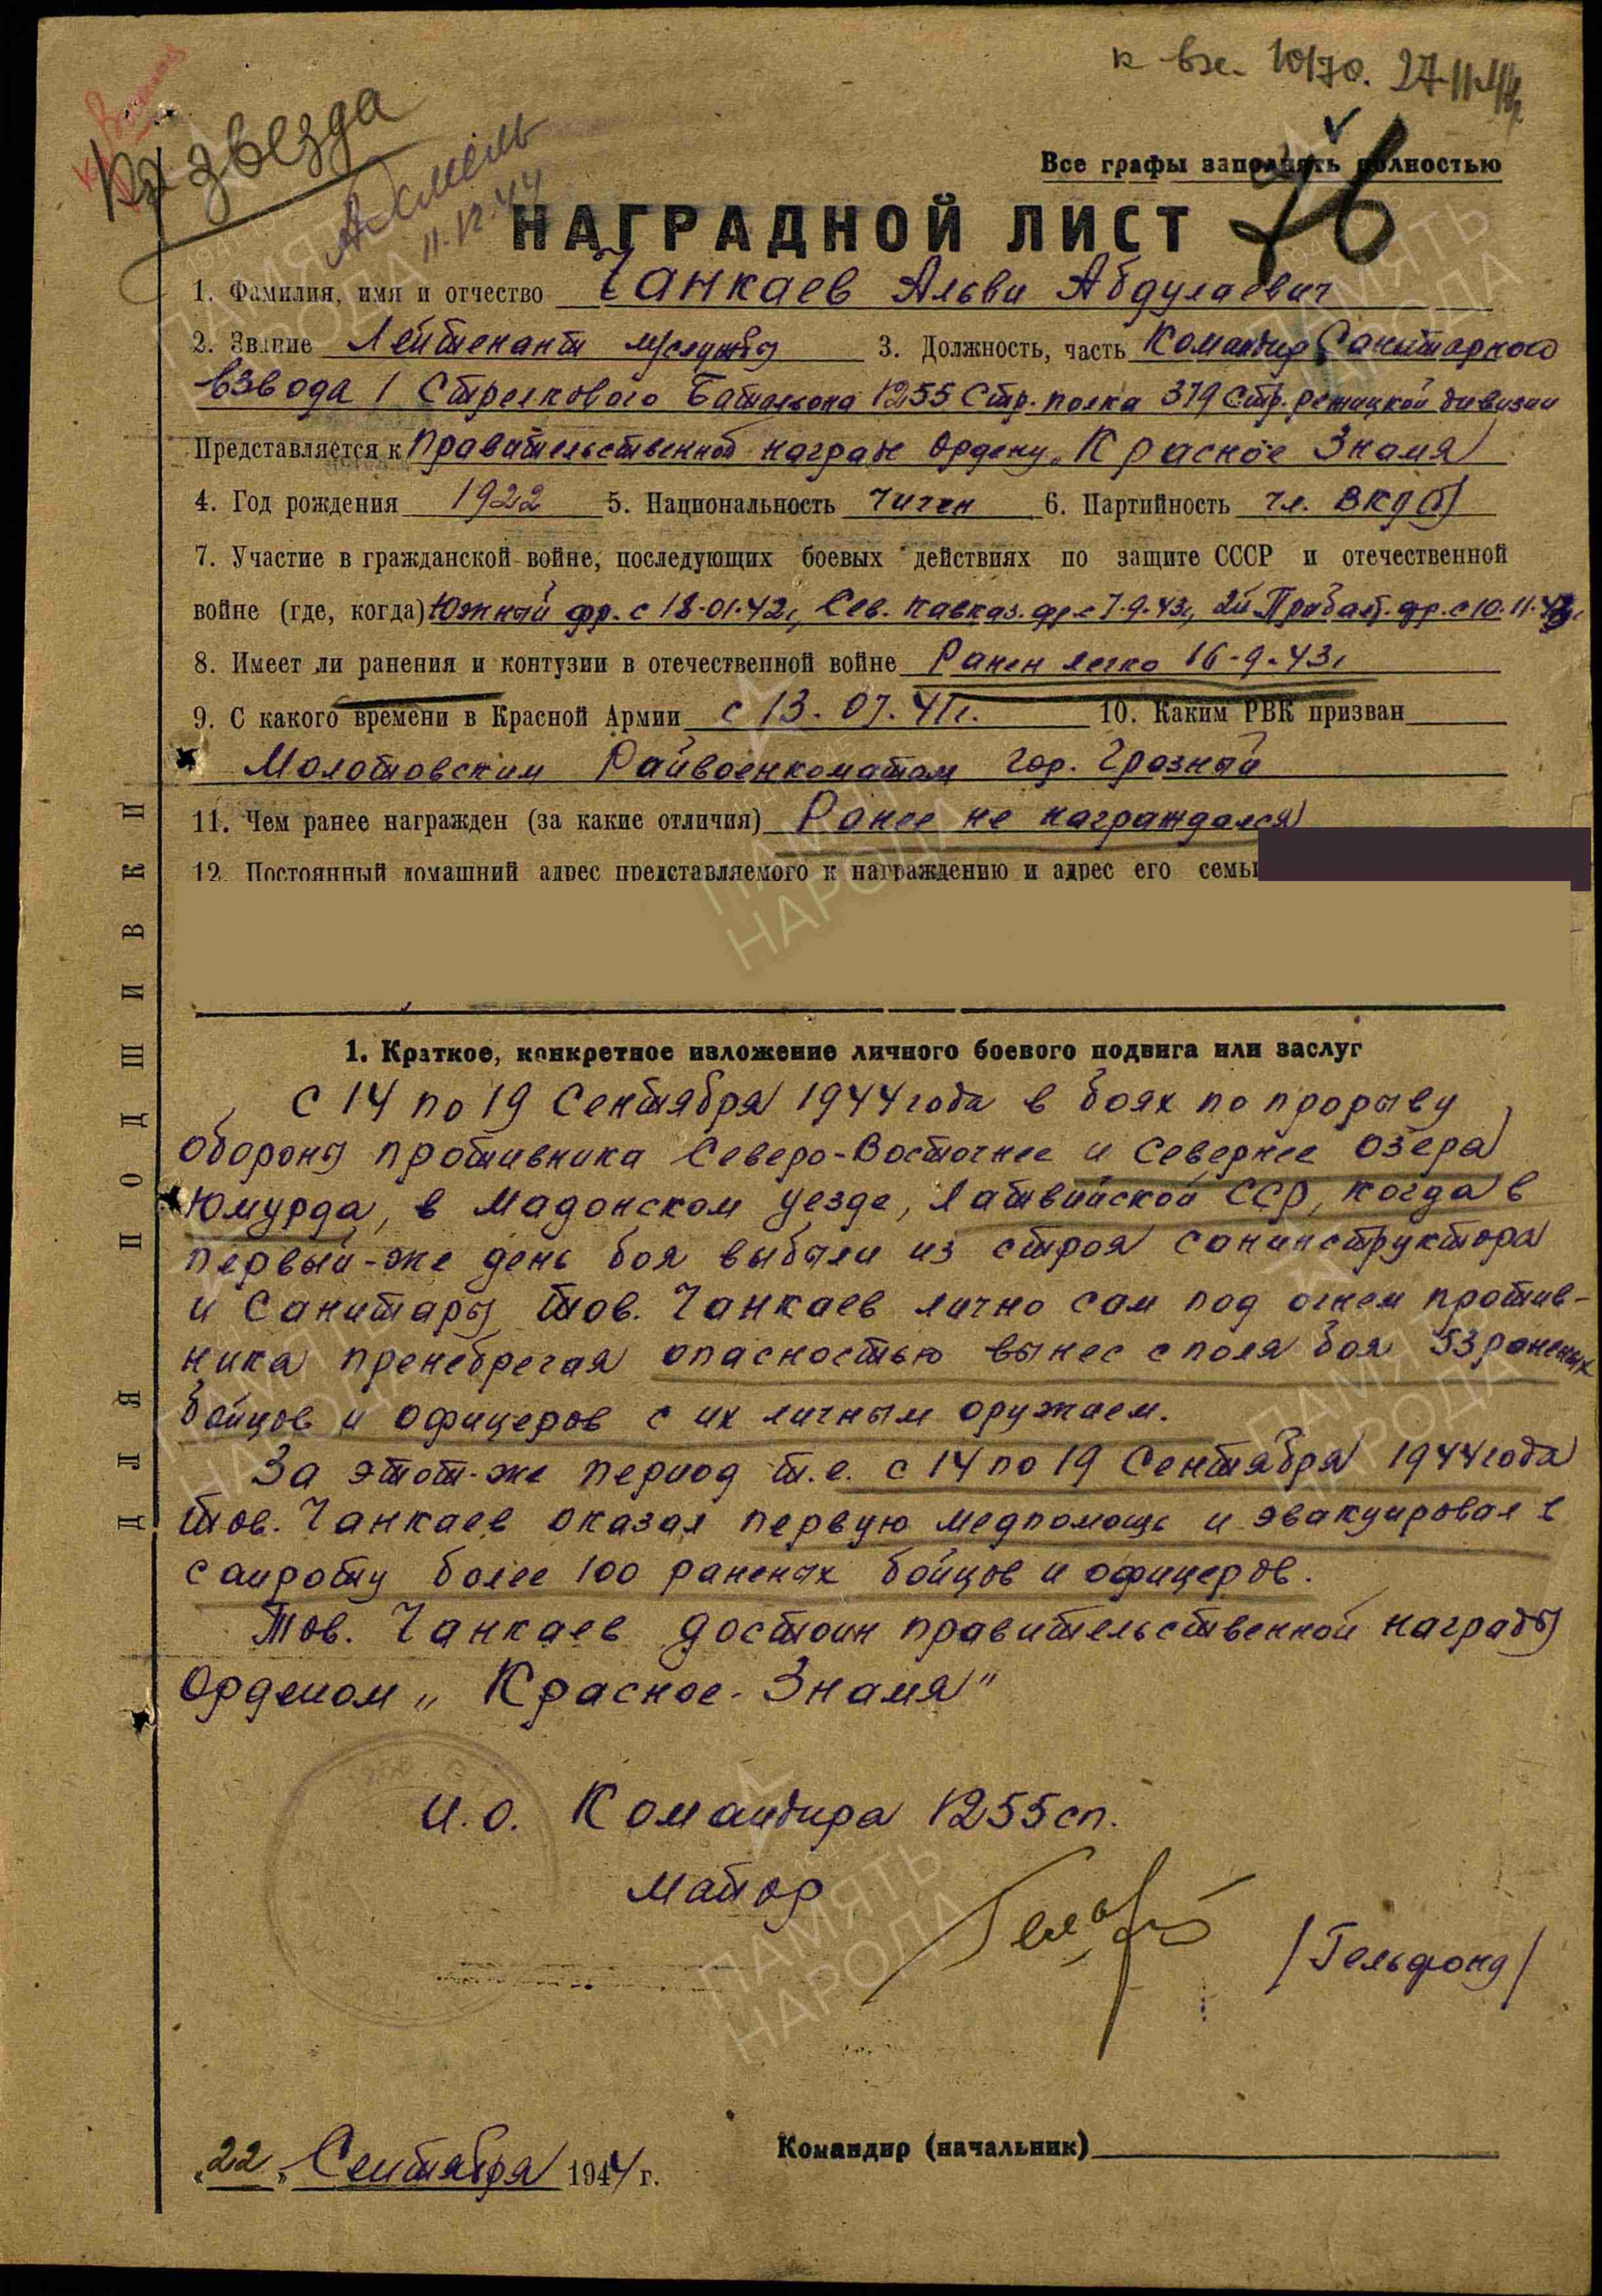 к вх. 10/70. 27.11.44г.
Кр звезда
11.12.44
Все графы заполнять полностью
НАГРАДНОЙ ЛИСТ
76
1. Фамилия, имя и отчество Чанкаев Альви Абдулаевич
2. Звание Лейтенант м/службы 3. Должность, часть Командир Санитарного
взвода 1 Стрелкового Батальона 1255 Стр. полка 379 Стр. режицкой дивизии
Представляется к правительственной награде Ордену „Красное Знамя
4. Год рождения 1922 5. Национальность чичен 6. Партийность чл. ВКП(б)
7. Участие в гражданской войне, последующих боевых действиях по защите СССР и отечественной
войне (где, когда) Южный фр. с 18.01.42г, Сев. Кавказ. фр. с 7.9.43г, 2й Прибалт. фр. с 10.11.43г
8. Имеет ли ранения и контузии в отечественной войне Ранен легко 16-9-43г
9. С какого времени в Красной Армии с 13.07.41г. 10. Каким РВК призван
Молотовским Райвоенкоматом гор. Грозный
11. Чем ранее награжден (за какие отличия) Ранее не награждался
12. Постоянный домашний адрес представляемого к награждению и адрес его семьи
1. Краткое, конкретное изложение личного боевого подвига или заслуг
С 14 по 19 Сентября 1944 года в боях по прорыву
обороны противника Северо-Восточнее и Севернее озера
Юмурда, в Мадонском уезде, Латвийской ССР, когда в
первый-же день боя выбыли из строя санинструктора
и Санитары тов. Чанкаев лично сам под огнем против-
ника пренебрегая опасностью вынес с поля боя 53 раненых
бойцов и офицеров с их личным оружием.
За этот-же период т.е. с 14 по 19 Сентября 1944 года
тов. Чанкаев оказал первую медпомощь и эвакуировал в
санроту более 100 раненых бойцов и офицеров.
Тов. Чанкаев достоин правительственной награды
Орденом „Красное-Знамя"
И.О. Командира 1255 сп.
Майор
/Гельфонд/
Командир (начальник)
„22" Сентября 1944 г.
ДЛЯ ПОДШИВКИ
ПАМЯТЬ НАРОДА